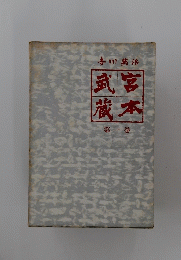 吉川英治
宮本
武蔵